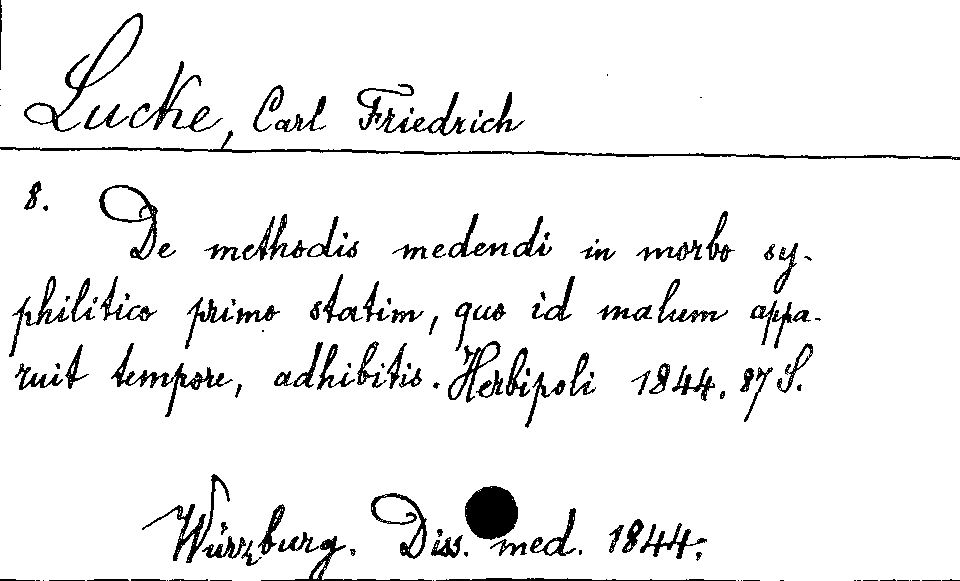 Lucke, Carl Friedrich
8. De methodis medendi in morbo sy-
philitico primo statim, quo id malum appa-
ruit tempore, adhibitis. Herbipoli 1844. 87 S.
Würzburg. Diss. med. 1844.